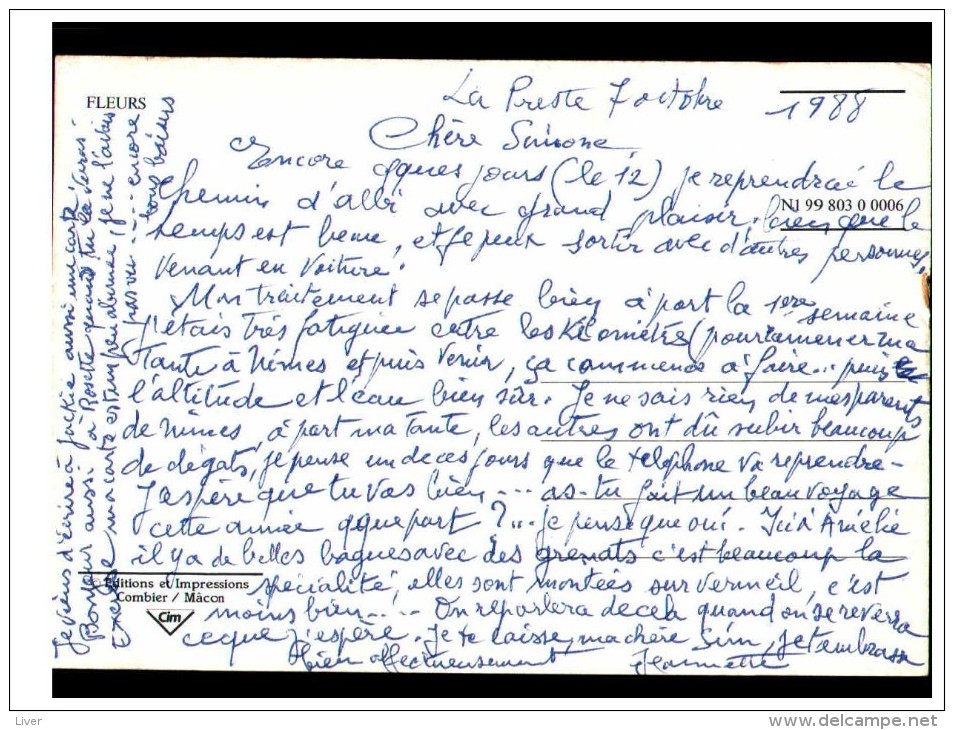 FLEURS
La Preste 7 octobre 1988
Chère Simone
Encore qques jours (le 12) je reprendrai le
chemin d'albi avec grand plaisir, bien que le
N1 99 803 0 0006
temps est beau, et je peux sortir avec d'autres personnes,
venant en voiture.
Mon traitement se passe bien à part la 1ère semaine
j'étais très fatiguée entre les kilomètres (pour amener ma
tante à Nimes et puis venir, ça commence à faire... puis
l'altitude et l'eau bien sûr. Je ne sais rien de mes parents
de nimes, à part ma tante, les autres ont dû subir beaucoup
de dégats, je pense un de ces jours que le téléphone va reprendre -
J'aspère que tu vas bien --- as-tu fait un beau voyage
cette année qque part ?... je pense que oui. Ici à Amélie
il y a de belles bagues avec des grenats c'est beaucoup la
spécialité, elles sont montées sur vermeil, c'est
moins bien .... On reparlera de cela quand on se reverra
ce que j'espère. Je te laisse, ma chère Sim, je t'embrasse
bien affectueusement Jeannette
Editions et Impressions
Combier / Mâcon
Cim
Je viens d'écrire à Jackie aussi une carte
Bonjour aussi à Rosette quand tu la verras -
Excuse ma carte est un peu abimée, je ne l'avais
pas vu --- encore
bons baisers
Liver
www.delcampe.net